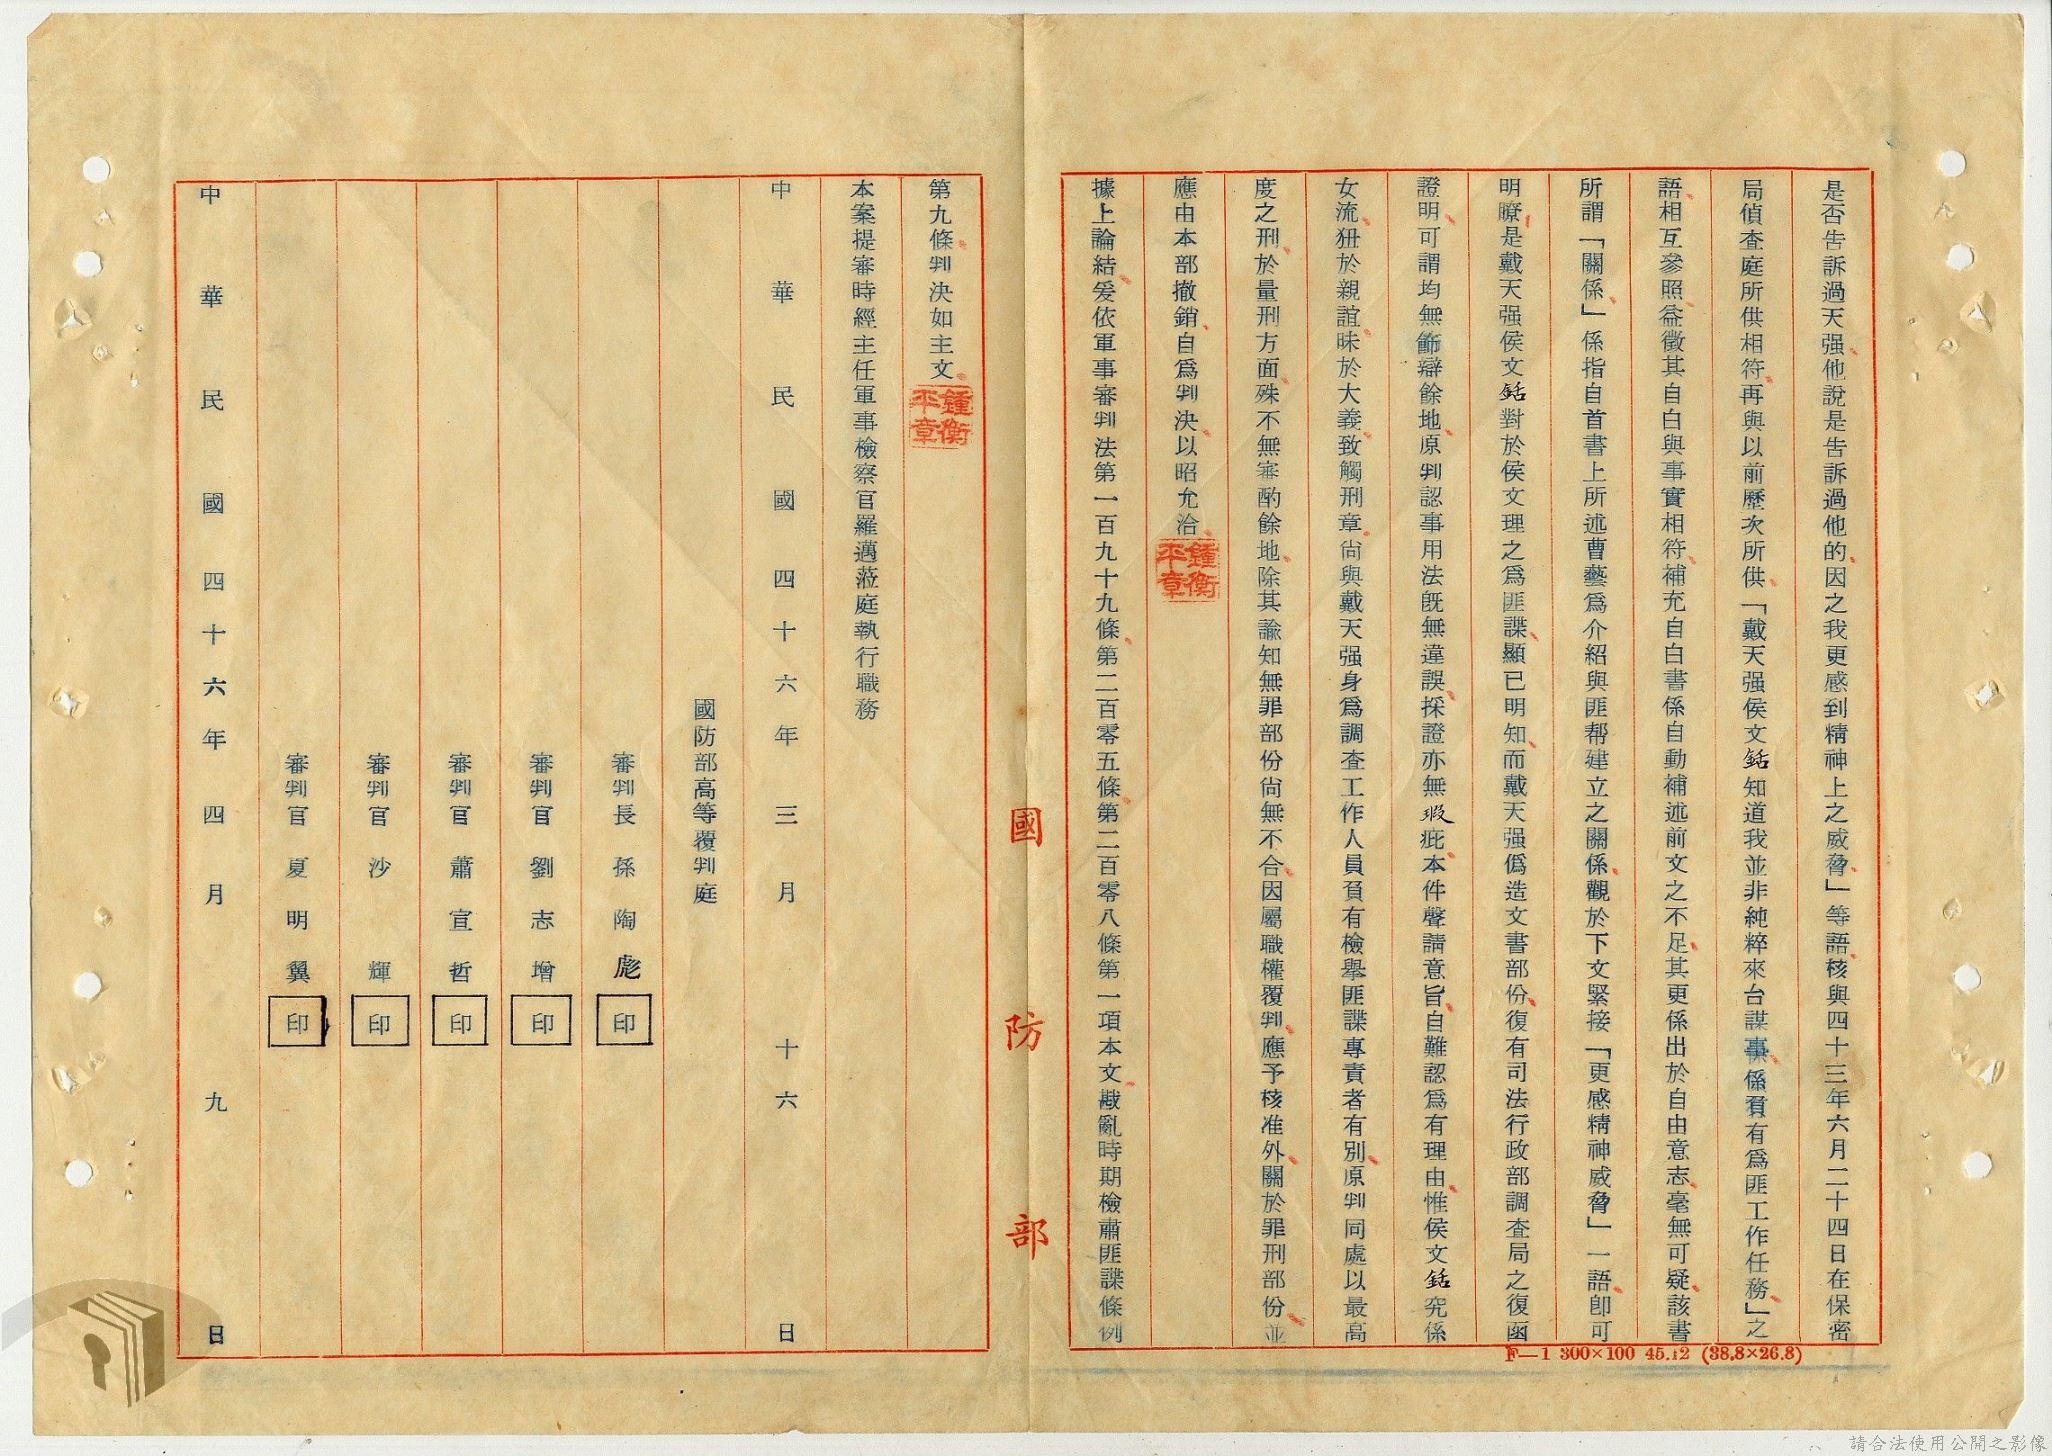 是否告訴過天强他說是告訴過他的因之我更感到精神上之威脅」等語核與四十三年六月二十四日在保密
局偵查庭所供相符再與以前歷次所供「戴天强侯文銛知道我並非純粹來台謀事係負有爲匪工作任務」之
語相互參照益徵其自白與事實相符補充自白書係自動補述前文之不足其更係出於自由意志毫無可疑該書
所謂「關係」係指自首書上所述曹藝爲介紹與匪帮建立之關係觀於下文緊接「更感精神威脅」一語卽可
明瞭是戴天强侯文銛對於侯文理之爲匪諜顯已明知而戴天强僞造文書部份復有司法行政部調查局之復函
證明可謂均無飾辯餘地原判認事用法旣無違誤採證亦無瑕疵本件聲請意旨自難認爲有理由惟侯文銛究係
女流狃於親誼昧於大義致觸刑章尙與戴天强身爲調查工作人員負有檢舉匪諜專責者有別原判同處以最高
度之刑於量刑方面殊不無審酌餘地除其諭知無罪部份尙無不合因屬職權覆判應予核准外關於罪刑部份並
應由本部撤銷自爲判決以昭允洽
鍾衡平章
據上論結爰依軍事審判法第一百九十九條第二百零五條第二百零八條第一項本文戡亂時期檢肅匪諜條例
國防部
F—1 300×100 45.12 (38.8×26.8)
第九條判決如主文
鍾衡平章
本案提審時經主任軍事檢察官羅邁蒞庭執行職務
中華民國四十六年三月十六日
國防部高等覆判庭
審判長孫陶彪印
審判官劉志增印
審判官蕭宣哲印
審判官沙輝印
審判官夏明翼印
中華民國四十六年四月九日
請合法使用公開之影像